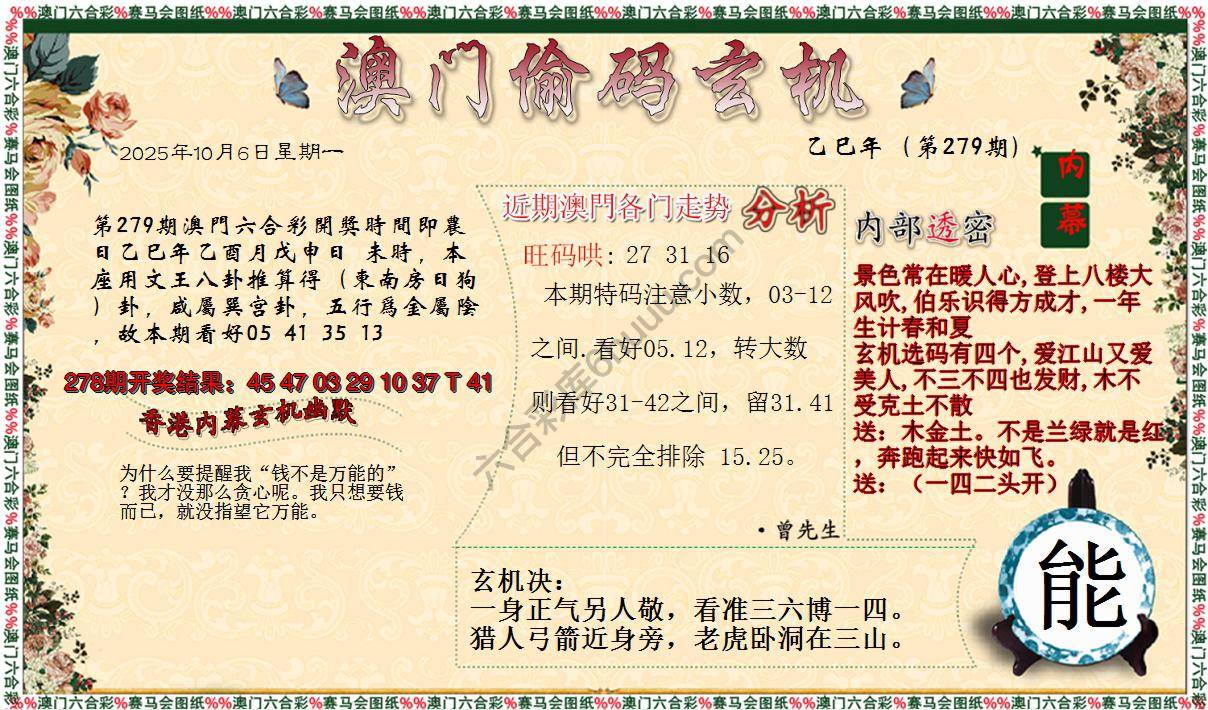 %%澳门六合彩%赛马会图纸%%澳门六合彩%赛马会图纸%%澳门六合彩%赛马会图纸%%澳门六合彩%赛马会图纸%%澳门六合彩%赛马会图纸%%澳门六合彩%赛马会图纸%%
澳门偷码玄机
2025年10月6日星期一
乙巳年（第279期）
内幕
第279期澳門六合彩開獎時間即農
日乙巳年乙酉月戊申日 未時，本
座用文王八卦推算得（東南房日狗
）卦，咸屬巽宫卦，五行爲金屬陰
，故本期看好05 41 35 13
278期开奖结果：45 47 03 29 10 37 T 41
香港内幕玄机幽默
为什么要提醒我“钱不是万能的”
？我才没那么贪心呢。我只想要钱
而已，就没指望它万能。
近期澳門各门走势 分析
旺码哄: 27 31 16
本期特码注意小数，03-12
之间.看好05.12，转大数
则看好31-42之间，留31.41
但不完全排除 15.25。
·曾先生
内部透密
景色常在暖人心,登上八楼大
风吹,伯乐识得方成才,一年
生计春和夏
玄机选码有四个,爱江山又爱
美人,不三不四也发财,木不
受克土不散
送：木金土。不是兰绿就是红
，奔跑起来快如飞。
送：（一四二头开）
玄机决：
一身正气另人敬，看准三六博一四。
猎人弓箭近身旁，老虎卧洞在三山。
能
%%澳门六合彩%赛马会图纸%%澳门六合彩%赛马会图纸%%澳门六合彩%赛马会图纸%%澳门六合彩%赛马会图纸%%澳门六合彩%赛马会图纸%%澳门六合彩%赛马会图纸%%